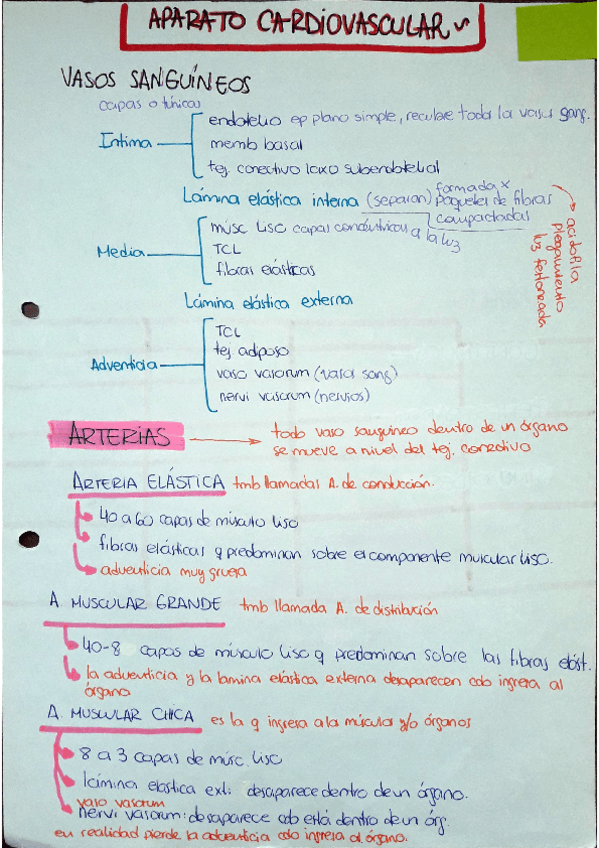 APARATO CARDIOVASCULAR
VASOS SANGUÍNEOS
capas o túnicas
Intima
endotelio ep plano simple, recubre toda la vasc sang.
memb basal
tej. conectivo laxo subendotelial
Lámina elástica interna (separan) formada x
paquetes de fibras
compactadas
acidofila
plegamiento
luz festoneada
Media
músc liso capas concéntricas a la luz
TCL
fibras elásticas
Lámina elástica externa
Adventicia
TCL
tej. adiposo
vaso vasorum (vasos sang)
nervi vasorum (nervios)
ARTERIAS
todo vaso sanguíneo dentro de un órgano
se mueve a nivel del tej. conectivo
ARTERIA ELÁSTICA tmb llamadas A. de conducción.
40 a 60 capas de músculo liso
fibras elásticas q predominan sobre el componente muscular liso.
adventicia muy gruesa
A. MUSCULAR GRANDE tmb llamada A. de distribución
40-8 capas de músculo liso q predominan sobre las fibras elást.
la adventicia y la lamina elástica externa desaparecen cdo ingresa al
órgano
A. MUSCULAR CHICA es la q ingresa a la músculos y/o órganos
8 a 3 capas de músc. liso
lámina elastica ext: desaparece dentro de un órgano.
vaso vasorum
nervi vasorum: desaparece cdo está dentro de un órg.
en realidad pierde la adventicia cdo ingresa al órgano.